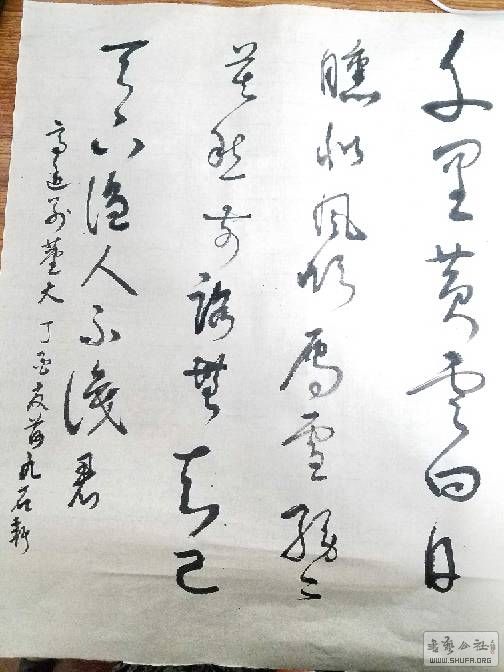 千里黄雲白日
曛北風吹雁雪紛〻
莫愁前路無知己
天下誰人不識君
高適别董大 丁酉 九石軒
書藝公社
WWW.SHUFA.ORG